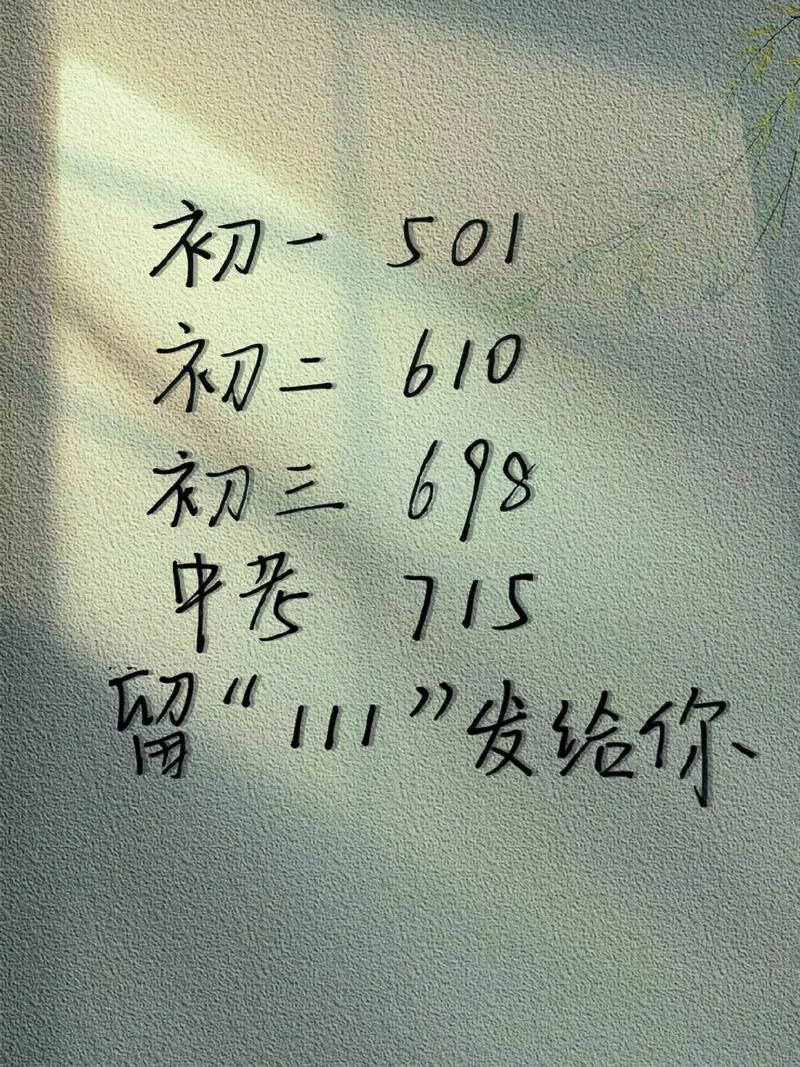 初一 501
初二 610
初三 698
中考 715
留“111”发给你